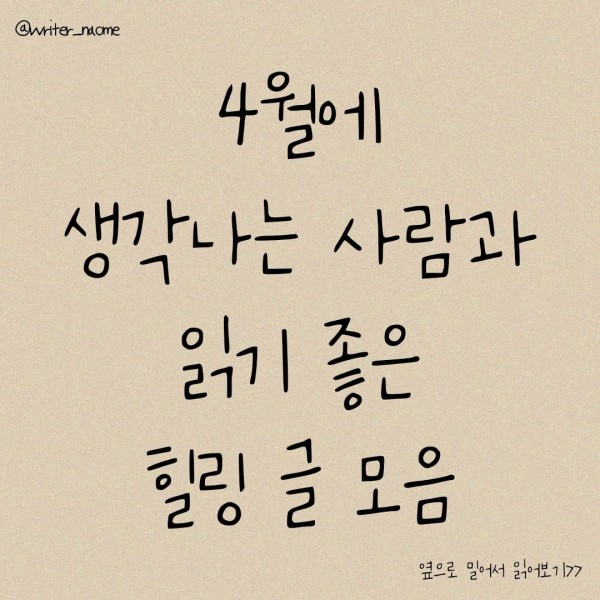 @writer_naome
4월에
생각나는 사람과
읽기 좋은
힐링 글 모음
옆으로 밀어서 읽어보기>>